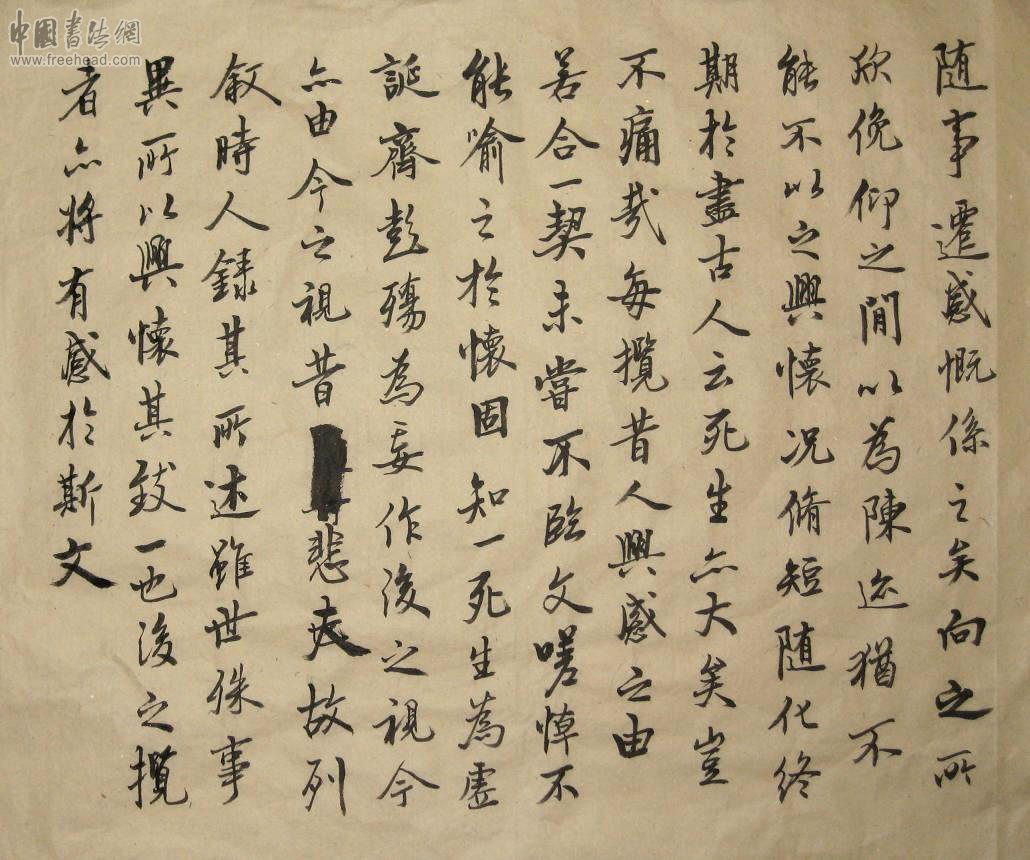 中國書法網
www.freehead.com
随事遷感慨係之矣向之所
欣俛仰之閒以為陳迹猶不
能不以之興懷况脩短随化終
期於盡古人云死生亦大矣豈
不痛哉每攬昔人興感之由
若合一契未嘗不臨文嗟悼不
能喻之於懷固知一死生為虚
誕齊彭殤為妄作後之視今
亦由今之視昔悲夫故列
叙時人録其所述雖世殊事
異所以興懷其致一也後之攬
者亦将有感於斯文